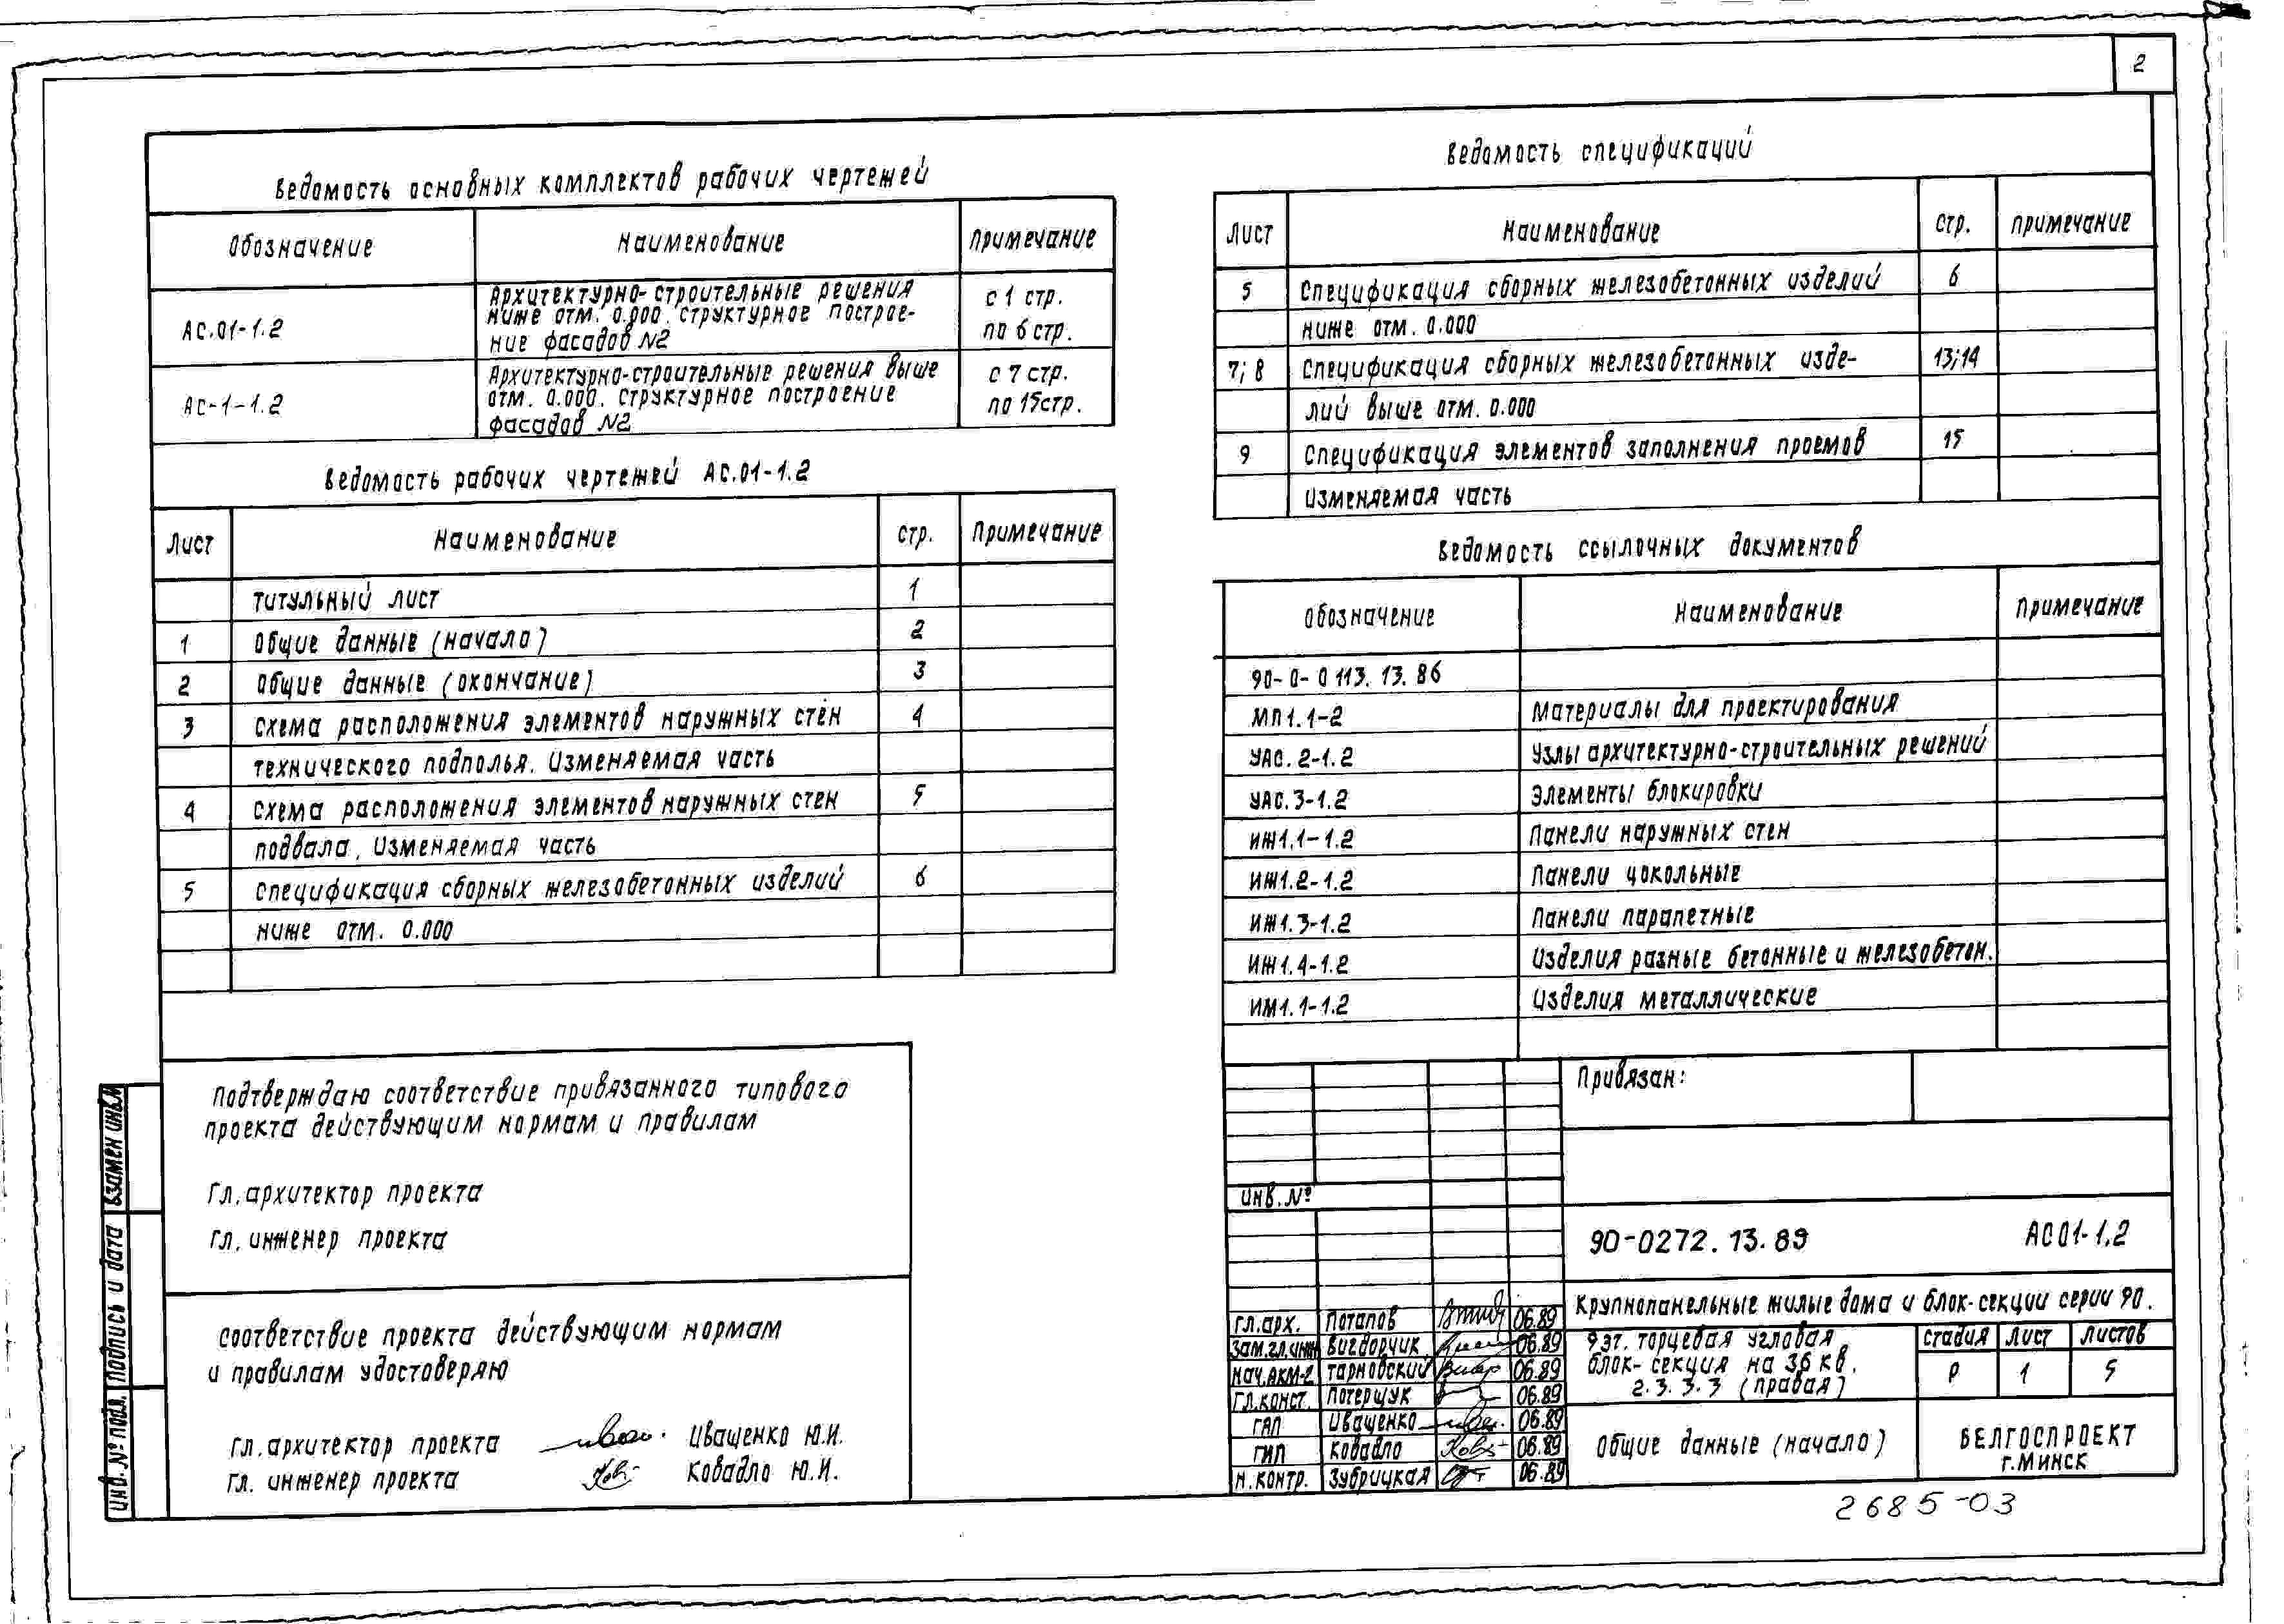 2
Ведомость основных комплектов рабочих чертежей
Обозначение Наименование Примечание
АС.01-1.2 Архитектурно-строительные решения ниже отм. 0.000. структурное построе- ние фасадов №2 с 1 стр. по 6 стр.
АС-1-1.2 Архитектурно-строительные решения выше отм. 0.000. структурное построение фасадов №2 с 7 стр. по 15 стр.
Ведомость рабочих чертежей АС.01-1.2
Лист Наименование стр. Примечание
Титульный лист 1
1 Общие данные (начало) 2
2 Общие данные (окончание) 3
3 Схема расположения элементов наружных стен 4
технического подполья. Изменяемая часть
4 Схема расположения элементов наружных стен 5
подвала. Изменяемая часть
5 Спецификация сборных железобетонных изделий 6
ниже отм. 0.000
Подтверждаю соответствие привязанного типового
проекта действующим нормам и правилам
Гл. архитектор проекта
Гл. инженер проекта
Соответствие проекта действующим нормам
и правилам удостоверяю
Гл. архитектор проекта Иващенко Ю.И.
Гл. инженер проекта Ковадло Ю.И.
Инв. № подл. Подпись и дата Взамен инв.№
Ведомость спецификаций
Лист Наименование стр. примечание
5 Спецификация сборных железобетонных изделий 6
ниже отм. 0.000
7; 8 Спецификация сборных железобетонных изде- 13;14
лий выше отм. 0.000
9 Спецификация элементов заполнения проемов 15
Изменяемая часть
Ведомость ссылочных документов
Обозначение Наименование Примечание
90-0-0113.13.86
МП1.1-2 Материалы для проектирования
УАС.2-1.2 Узлы архитектурно-строительных решений
УАС.3-1.2 Элементы блокировки
ИЖ1.1-1.2 Панели наружных стен
ИЖ1.2-1.2 Панели цокольные
ИЖ1.3-1.2 Панели парапетные
ИЖ1.4-1.2 Изделия разные бетонные и железобетон.
ИМ1.1-1.2 Изделия металлические
Привязан:
Инв. №
90-0272.13.89 АС01-1.2
Крупнопанельные жилые дома и блок-секции серии 90.
Гл. арх. Потапов 06.89
Зам.гл.инж Вигдорчик 06.89
Нач.АКМ-2 Тарновский 06.89
Гл.конст. Потерщук 06.89
ГАП Иващенко 06.89
ГИП Ковадло 06.89
Н. контр. Зубрицкая 06.89
9 эт. торцевая угловая
блок-секция на 36 кв.
2.3.3.3 (правая)
стадия лист листов
Р 1 5
Общие данные (начало)
БЕЛГОСПРОЕКТ
г. МИНСК
2685-03